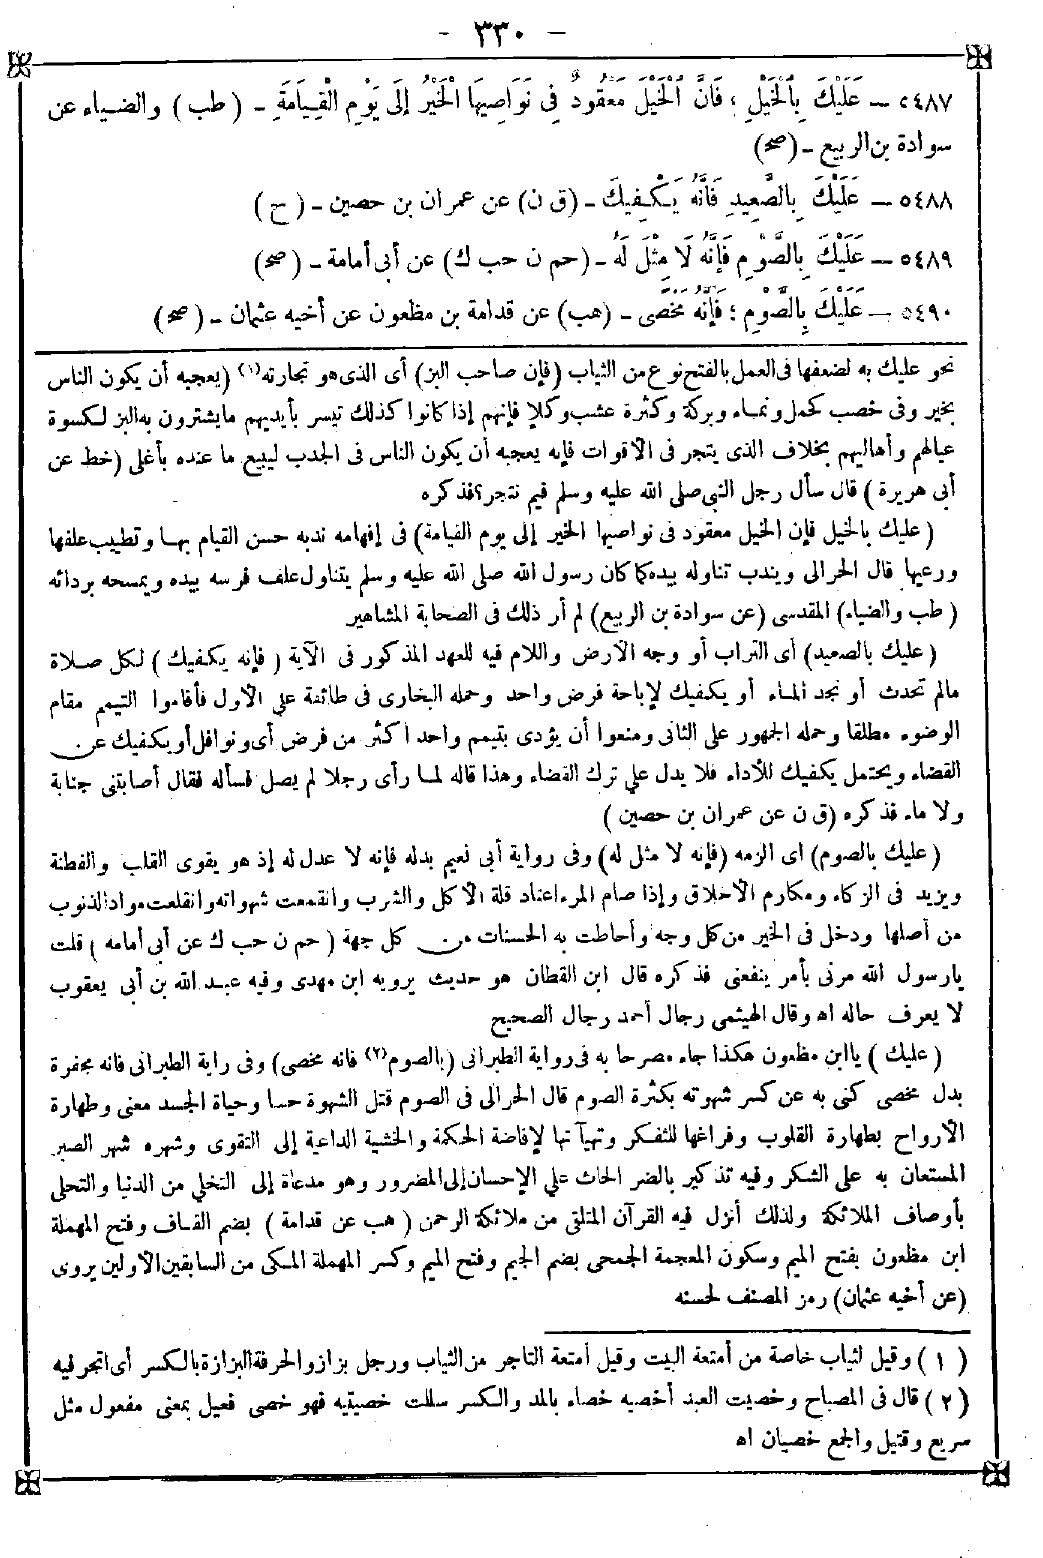 - ٣٣٠ -
٥٤٨٧ — عَلَيْكَ بِالْخَيْلِ ؛ فَانَّ الْخَيْلَ مَعْقُودٌ فِى نَوَاصِيهَا الْخَيْرُ إلَى يَوْمِ الْقِيَامَةِ - ( طب ) والضياء عن
سوادة بن الربيع - (صح)
٥٤٨٨ — عَلَيْكَ بِالصَّعِيدِ فَانَّهُ يَكْفِيكَ - (ق ن) عن عمران بن حصين - ( ح )
٥٤٨٩ — عَلَيْكَ بِالصَّوْمِ فَإنَّهُ لَا مِثْلَ لَهُ - (حم ن حب ك) عن أبى أمامة - ( صح )
٥٤٩٠ — عَلَيْكَ بِالصَّوْمِ ؛ فَإنَّهُ مَخْصًى - (هب) عن قدامة بن مظعون عن أخيه عثمان - ( صح )
نحو عليك به لضعفها فى العمل بالفتح نوع من الثياب (فإن صاحب البز) أى الذى هو تجارته(١) (يعجبه أن يكون الناس
بخير وفى خصب كحمل ونماء وبركة وكثرة عشب وكلإ فإنهم إذا كانوا كذلك تيسر بأيديهم ما يشترون به البز لكسوة
عيالهم وأهاليهم بخلاف الذى يتجر فى الأقوات فإنه يعجبه أن يكون الناس فى الجدب ليبيع ما عنده بأغلى (خط عن
أبى هريرة) قال سأل رجل النبى صلى الله عليه وسلم فيم نتجر؟ فذكره
(عليك بالخيل فإن الخيل معقود فى نواصيها الخير إلى يوم القيامة) فى إفهامه ندبه حسن القيام بها وتطييب علفها
ورعيها قال الحرالى ويندب تناوله بيده كما كان رسول الله صلى الله عليه وسلم يتناول علف فرسه بيده ويمسحه بردائه
( طب والضياء) المقدسى (عن سوادة بن الربيع) لم أر ذلك فى الصحابة المشاهير
(عليك بالصعيد) أى التراب أو وجه الأرض واللام فيه للعهد المذكور فى الآية ( فإنه يكفيك ) لكل صلاة
مالم تحدث أو نجد الماء أو يكفيك لإباحة فرض واحد وحمله البخارى فى طائفة على الأول فأقاموا التيمم مقام
الوضوء مطلقا وحمله الجمهور على الثانى ومنعوا أن يؤدى بتيمم واحد اكثر من فرض أى ونوافل أو يكفيك عن
القضاء ويحتمل يكفيك للأداء فلا يدل على ترك القضاء وهذا قاله لما رأى رجلا لم يصل فسأله فقال أصابتنى جنابة
ولا ماء فذكره (ق ن عن عمران بن حصين )
(عليك بالصوم) اى الزمه (فإنه لا مثل له) وفى رواية أبى نعيم بدله فإنه لا عدل له إذ هو يقوى القلب والفطنة
ويزيد فى الزكاء ومكارم الأخلاق وإذا صام المرء اعتاد قلة الأكل والشرب وانقمعت شهواته وانقلعت مواد الذنوب
من أصلها ودخل فى الخير من كل وجه وأحاطت به الحسنات من كل جهة ( حم ن حب ك عن أبى أمامه ) قلت
يارسول الله مرنى بأمر ينفعنى فذكره قال ابن القطان هو حديث يرويه ابن مهدى وفيه عبد الله بن أبى يعقوب
لا يعرف حاله اه وقال الهيثمى رجال أحمد رجال الصحيح
(عليك ) ياابن مظعون هكذا جاء مصرحا به فى رواية الطبرانى (بالصوم(٢) فانه مخصى) وفى راية الطبرانى فانه مجفرة
بدل مخصى كنى به عن كسر شهوته بكثرة الصوم قال الحرالى فى الصوم قتل الشهوة حسا وحياة الجسد معنى وطهارة
الأرواح بطهارة القلوب وفراغها للتفكر وتهيآتها لإفاضة الحكمة والخشية الداعية إلى التقوى وشهره شهر الصبر
المستعان به على الشكر وفيه تذكير بالضر الحاث على الإحسان إلى المضرور وهو مدعاة إلى التخلى من الدنيا والتحلى
بأوصاف الملائكة ولذلك أنزل فيه القرآن المتلقى من ملائكة الرحمن ( هب عن قدامة ) بضم القاف وفتح المهملة
ابن مظعون بفتح الميم وسكون المعجمة الجمحى بضم الجيم وفتح الميم وكسر المهملة المكى من السابقين الأولين يروى
(عن أخيه عثمان) رمز المصنف لحسنه
(١) وقيل الثياب خاصة من أمتعة البيت وقيل أمتعة التاجر من الثياب ورجل بزاز والحرفة البزازة بالكسر أى اتجر فيه
(٢) قال فى المصباح وخصيت العبد أخصيه خصاء بالمد والكسر سللت خصيتيه فهو خصى فعيل بمعنى مفعول مثل
سريع وقتيل والجمع خصيان اه